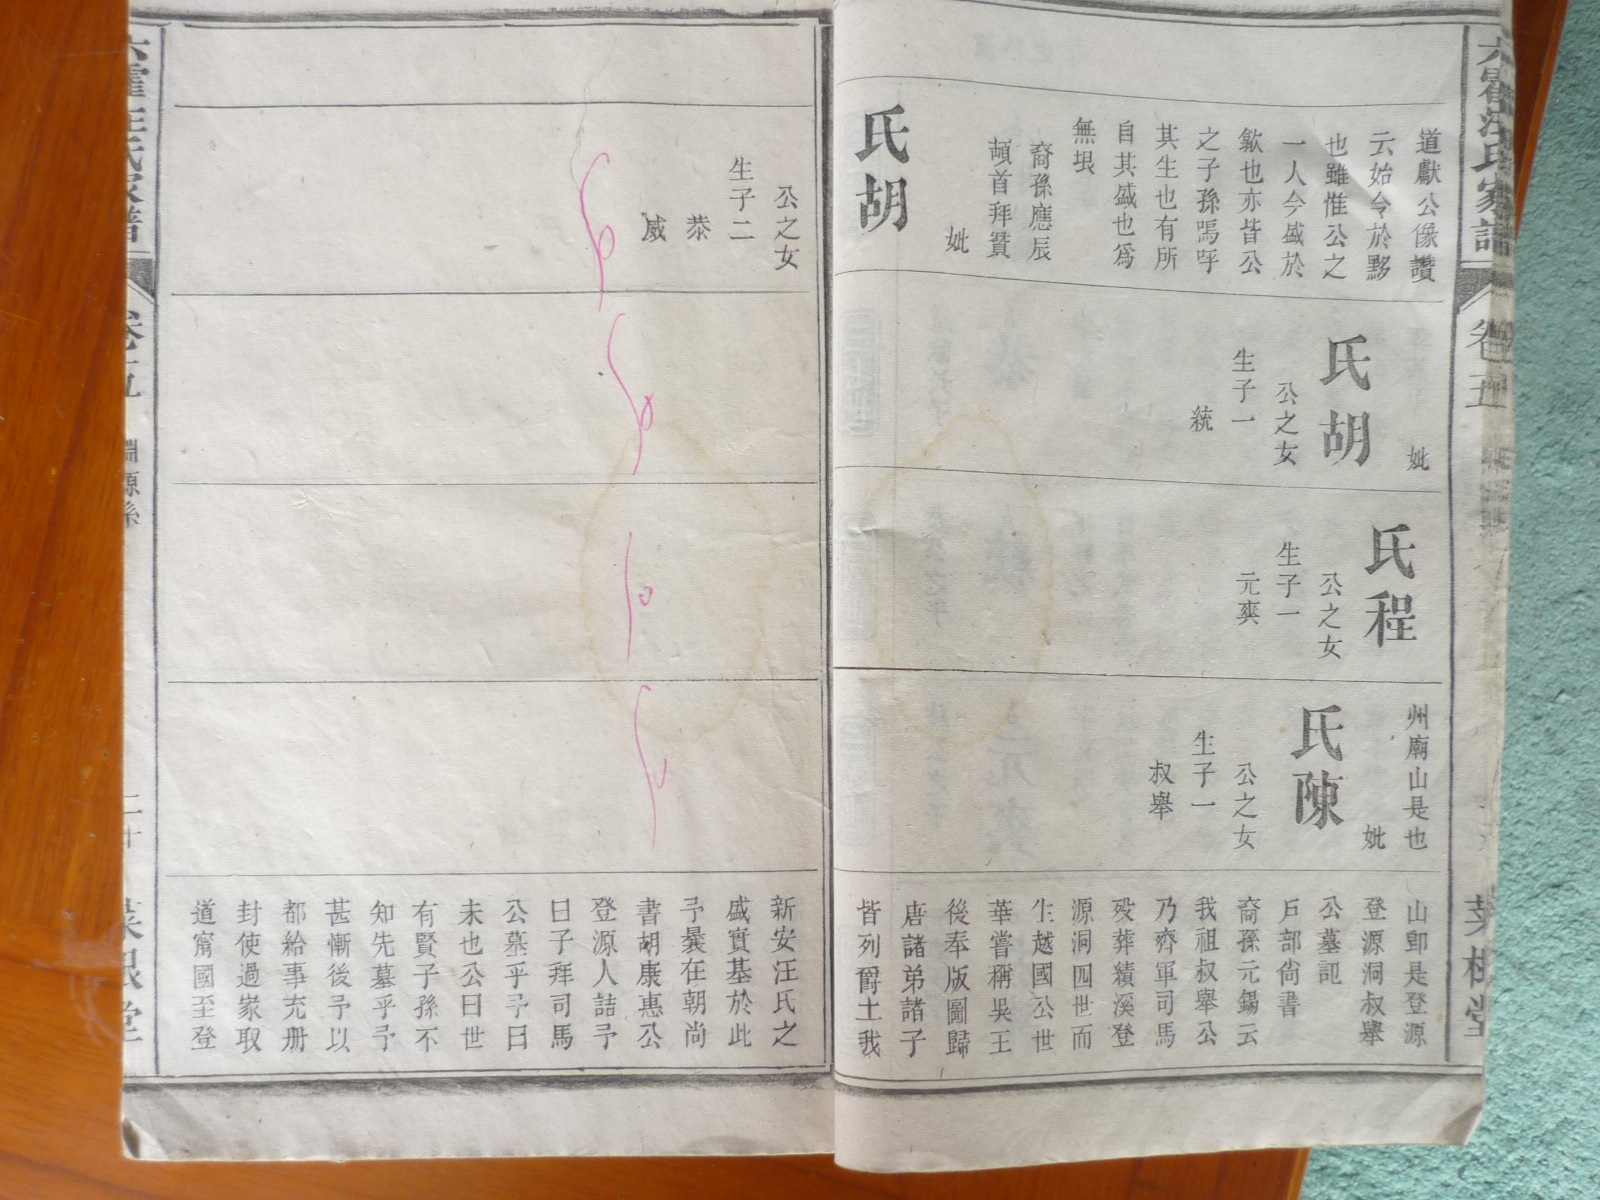 六霍汪氏家譜
卷五
菜根堂
道獻公像讚
云始令於黟
也雖惟公之
一人今盛於
歙也亦皆公
之子孫嗚呼
其生也有所
自其盛也爲
無垠
裔孫應辰
頓首拜贊
妣
氏胡
妣
氏胡
公之女
生子一
統
氏程
公之女
生子一
元爽
州廟山是也
妣
氏陳
公之女
生子一
叔舉
山卽是登源
登源洞叔舉
公墓記
戶部尚書
裔孫元錫云
我祖叔舉公
乃齊軍司馬
歿葬績溪登
源洞四世而
生越國公世
華嘗稱吳王
後奉版圖歸
唐諸弟諸子
皆列爵土我
公之女
生子二
恭
威
新安汪氏之
盛實基於此
予曩在朝尚
書胡康惠公
登源人詰予
曰子拜司馬
公墓乎予曰
未也公曰世
有賢子孫不
知先墓乎予
甚慚後予以
都給事充册
封使過家取
道甯國至登
六霍汪氏家譜
卷五
淵源系
二十
菜根堂